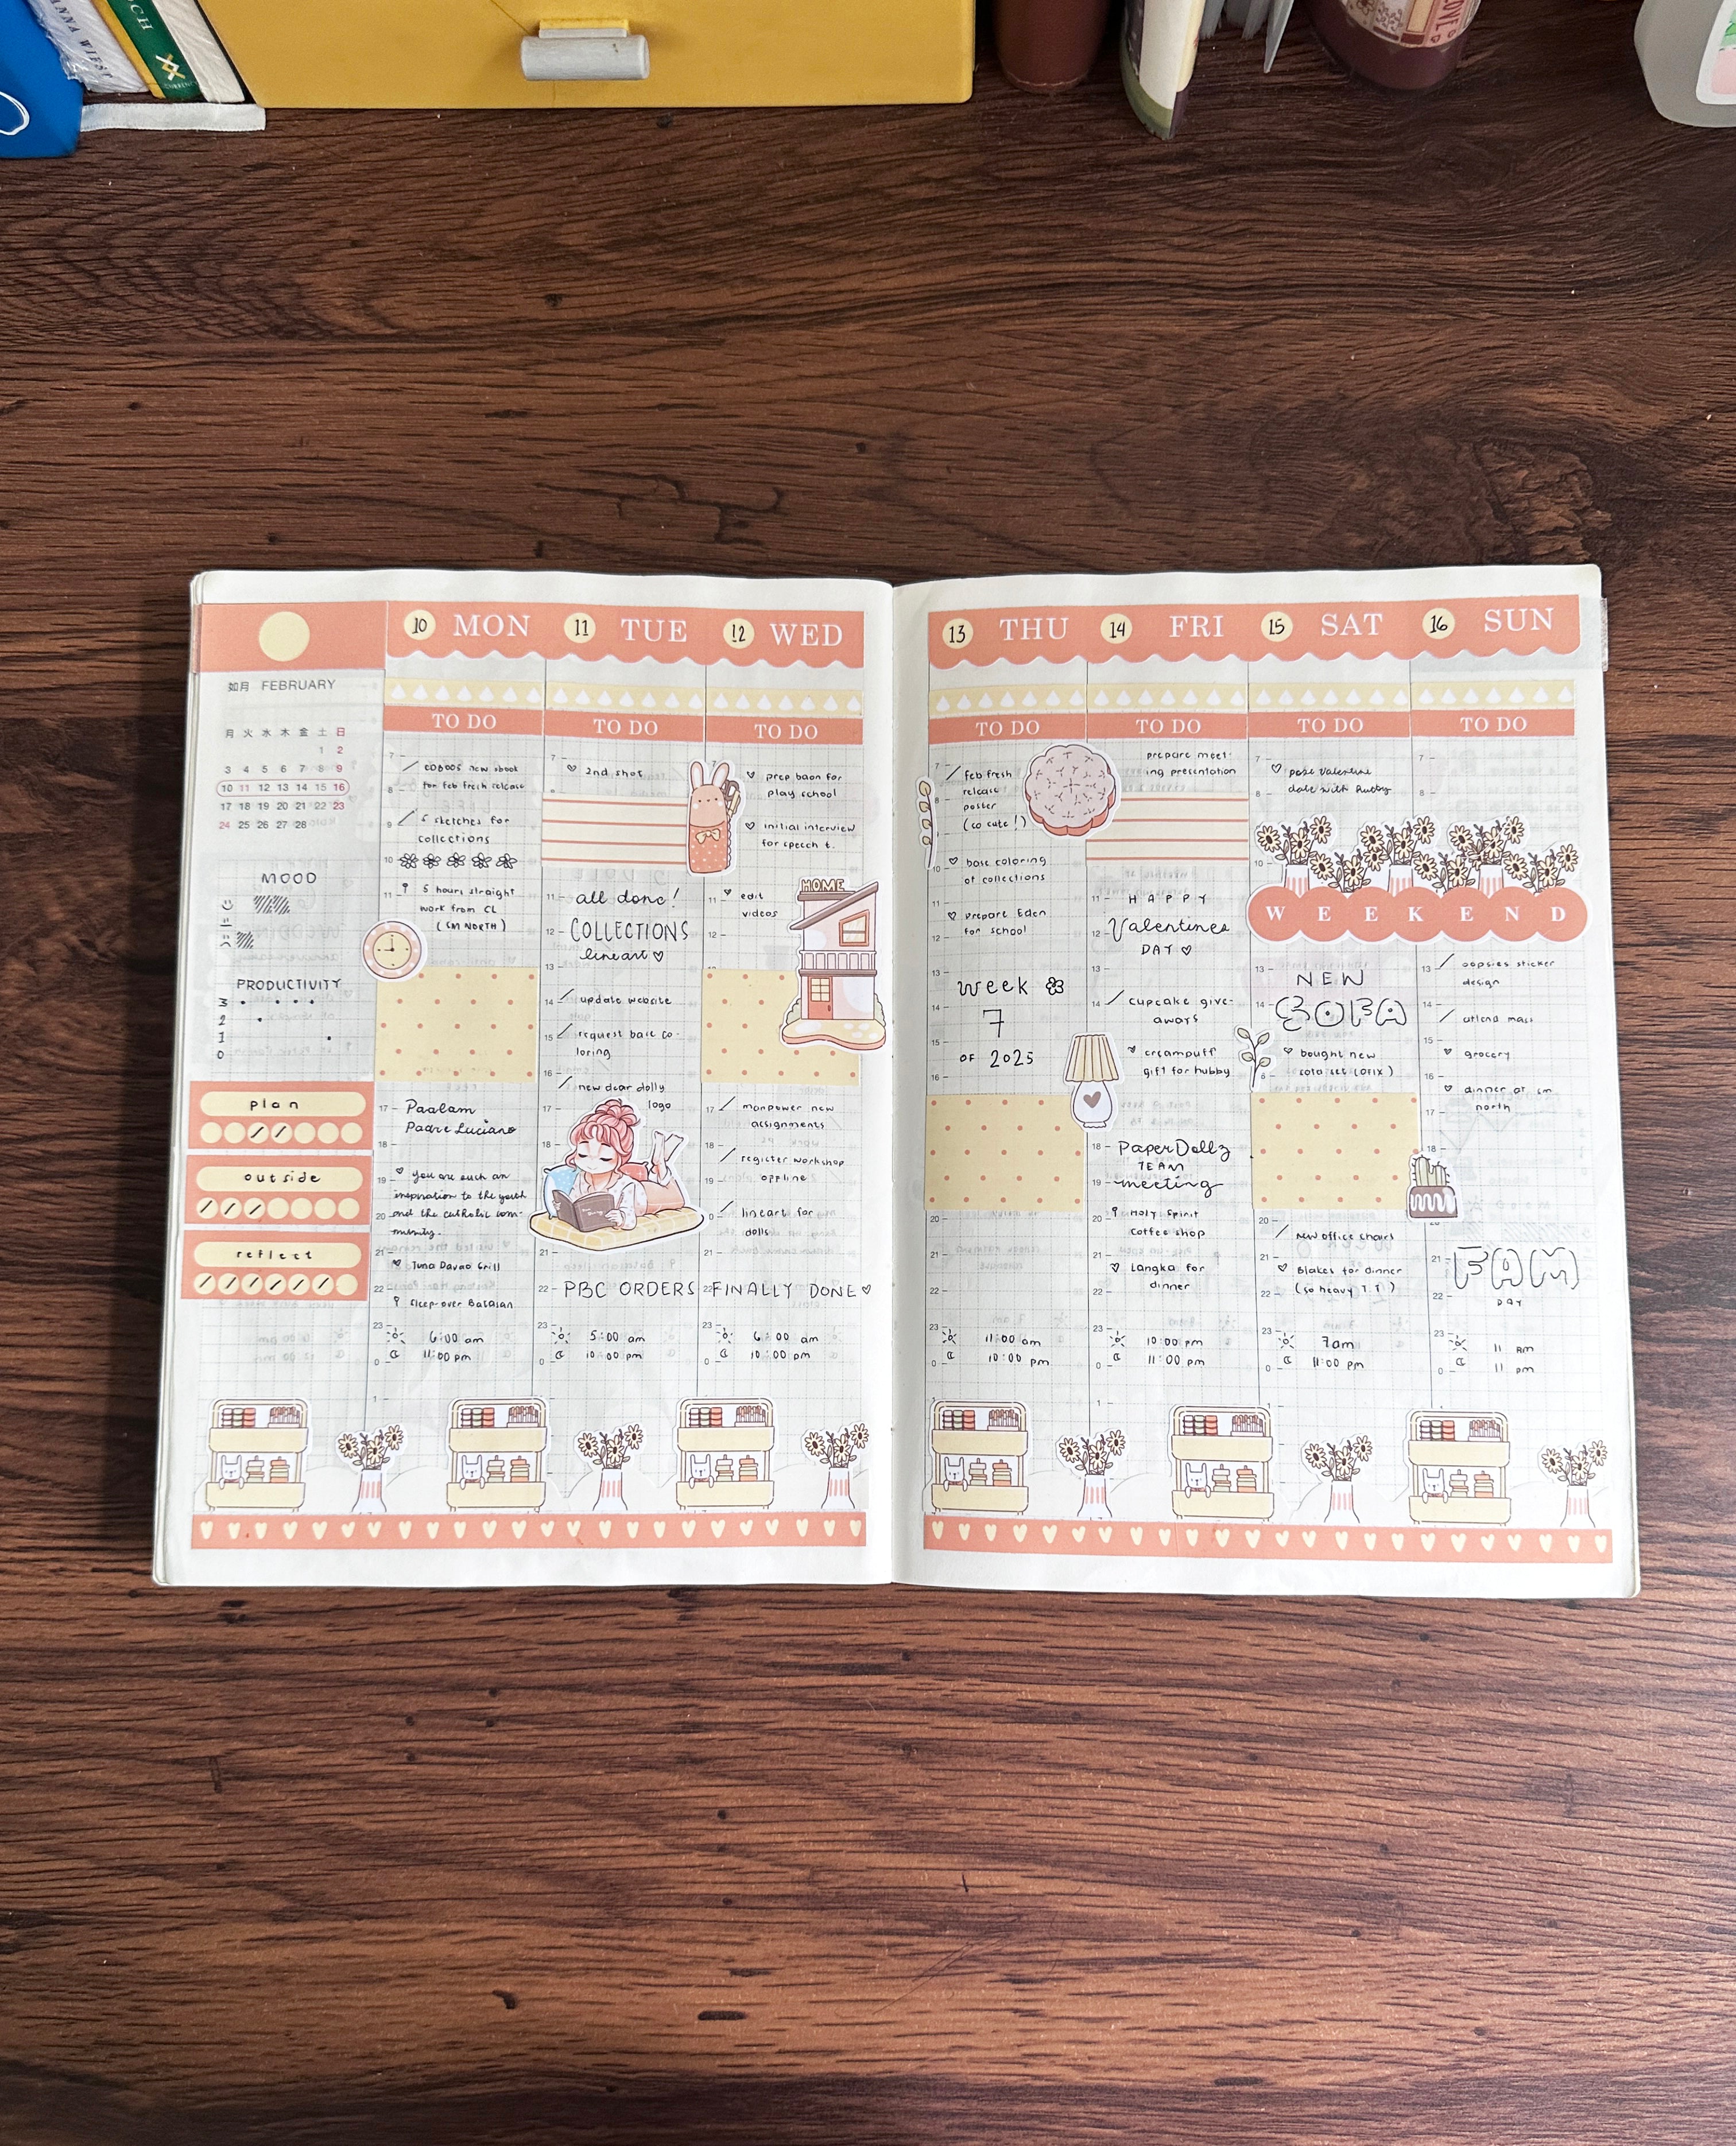 ANNA WIEST
OCH
如月 FEBRUARY
月 火 水 木 金 土 日
1 2
3 4 5 6 7 8 9
10 11 12 13 14 15 16
17 18 19 20 21 22 23
24 25 26 27 28
MOOD
PRODUCTIVITY
3
2
1
0
plan
outside
reflect
10 MON
TO DO
new ebook
for feb fresh release
5 sketches for
collections
5 hours straight
work from CL
(SM NORTH)
Paalam
Padre Luciano
you are such an
inspiration to the youth
and the catholic com-
munity.
Tuna Davao Grill
sleep over Bataan
6:00 am
11:00 pm
11 TUE
TO DO
2nd shot
all done!
COLLECTIONS
lineart
update website
request base co-
loring
new dear dolly
logo
PBC ORDERS
5:00 am
10:00 pm
12 WED
TO DO
prep baon for
play school
initial interview
for speech t.
edit
videos
HOME
manpower new
assignments
register workshop
offline
lineart for
dolls
FINALLY DONE
6:00 am
10:00 pm
13 THU
TO DO
feb fresh
release
poster
(so cute!)
base coloring
of collections
prepare Eden
for school
week
7
OF 2025
11:00 am
10:00 pm
14 FRI
TO DO
prepare meet-
ing presentation
HAPPY
Valentines
DAY
cupcake give-
aways
creampuff
gift for hubby
PaperDollz
TEAM
meeting
Holy Spirit
coffee shop
Langka for
dinner
10:00 pm
11:00 pm
15 SAT
TO DO
Valentine
date with hubby
WEEKEND
NEW
SOFA
bought new
sofa set (OFIX)
new office chairs
Blakes for dinner
(so heavy T.T)
7am
11:00 pm
16 SUN
TO DO
oopsies sticker
design
attend mass
grocery
dinner at sm
north
FAM
DAY
11 AM
11 pm